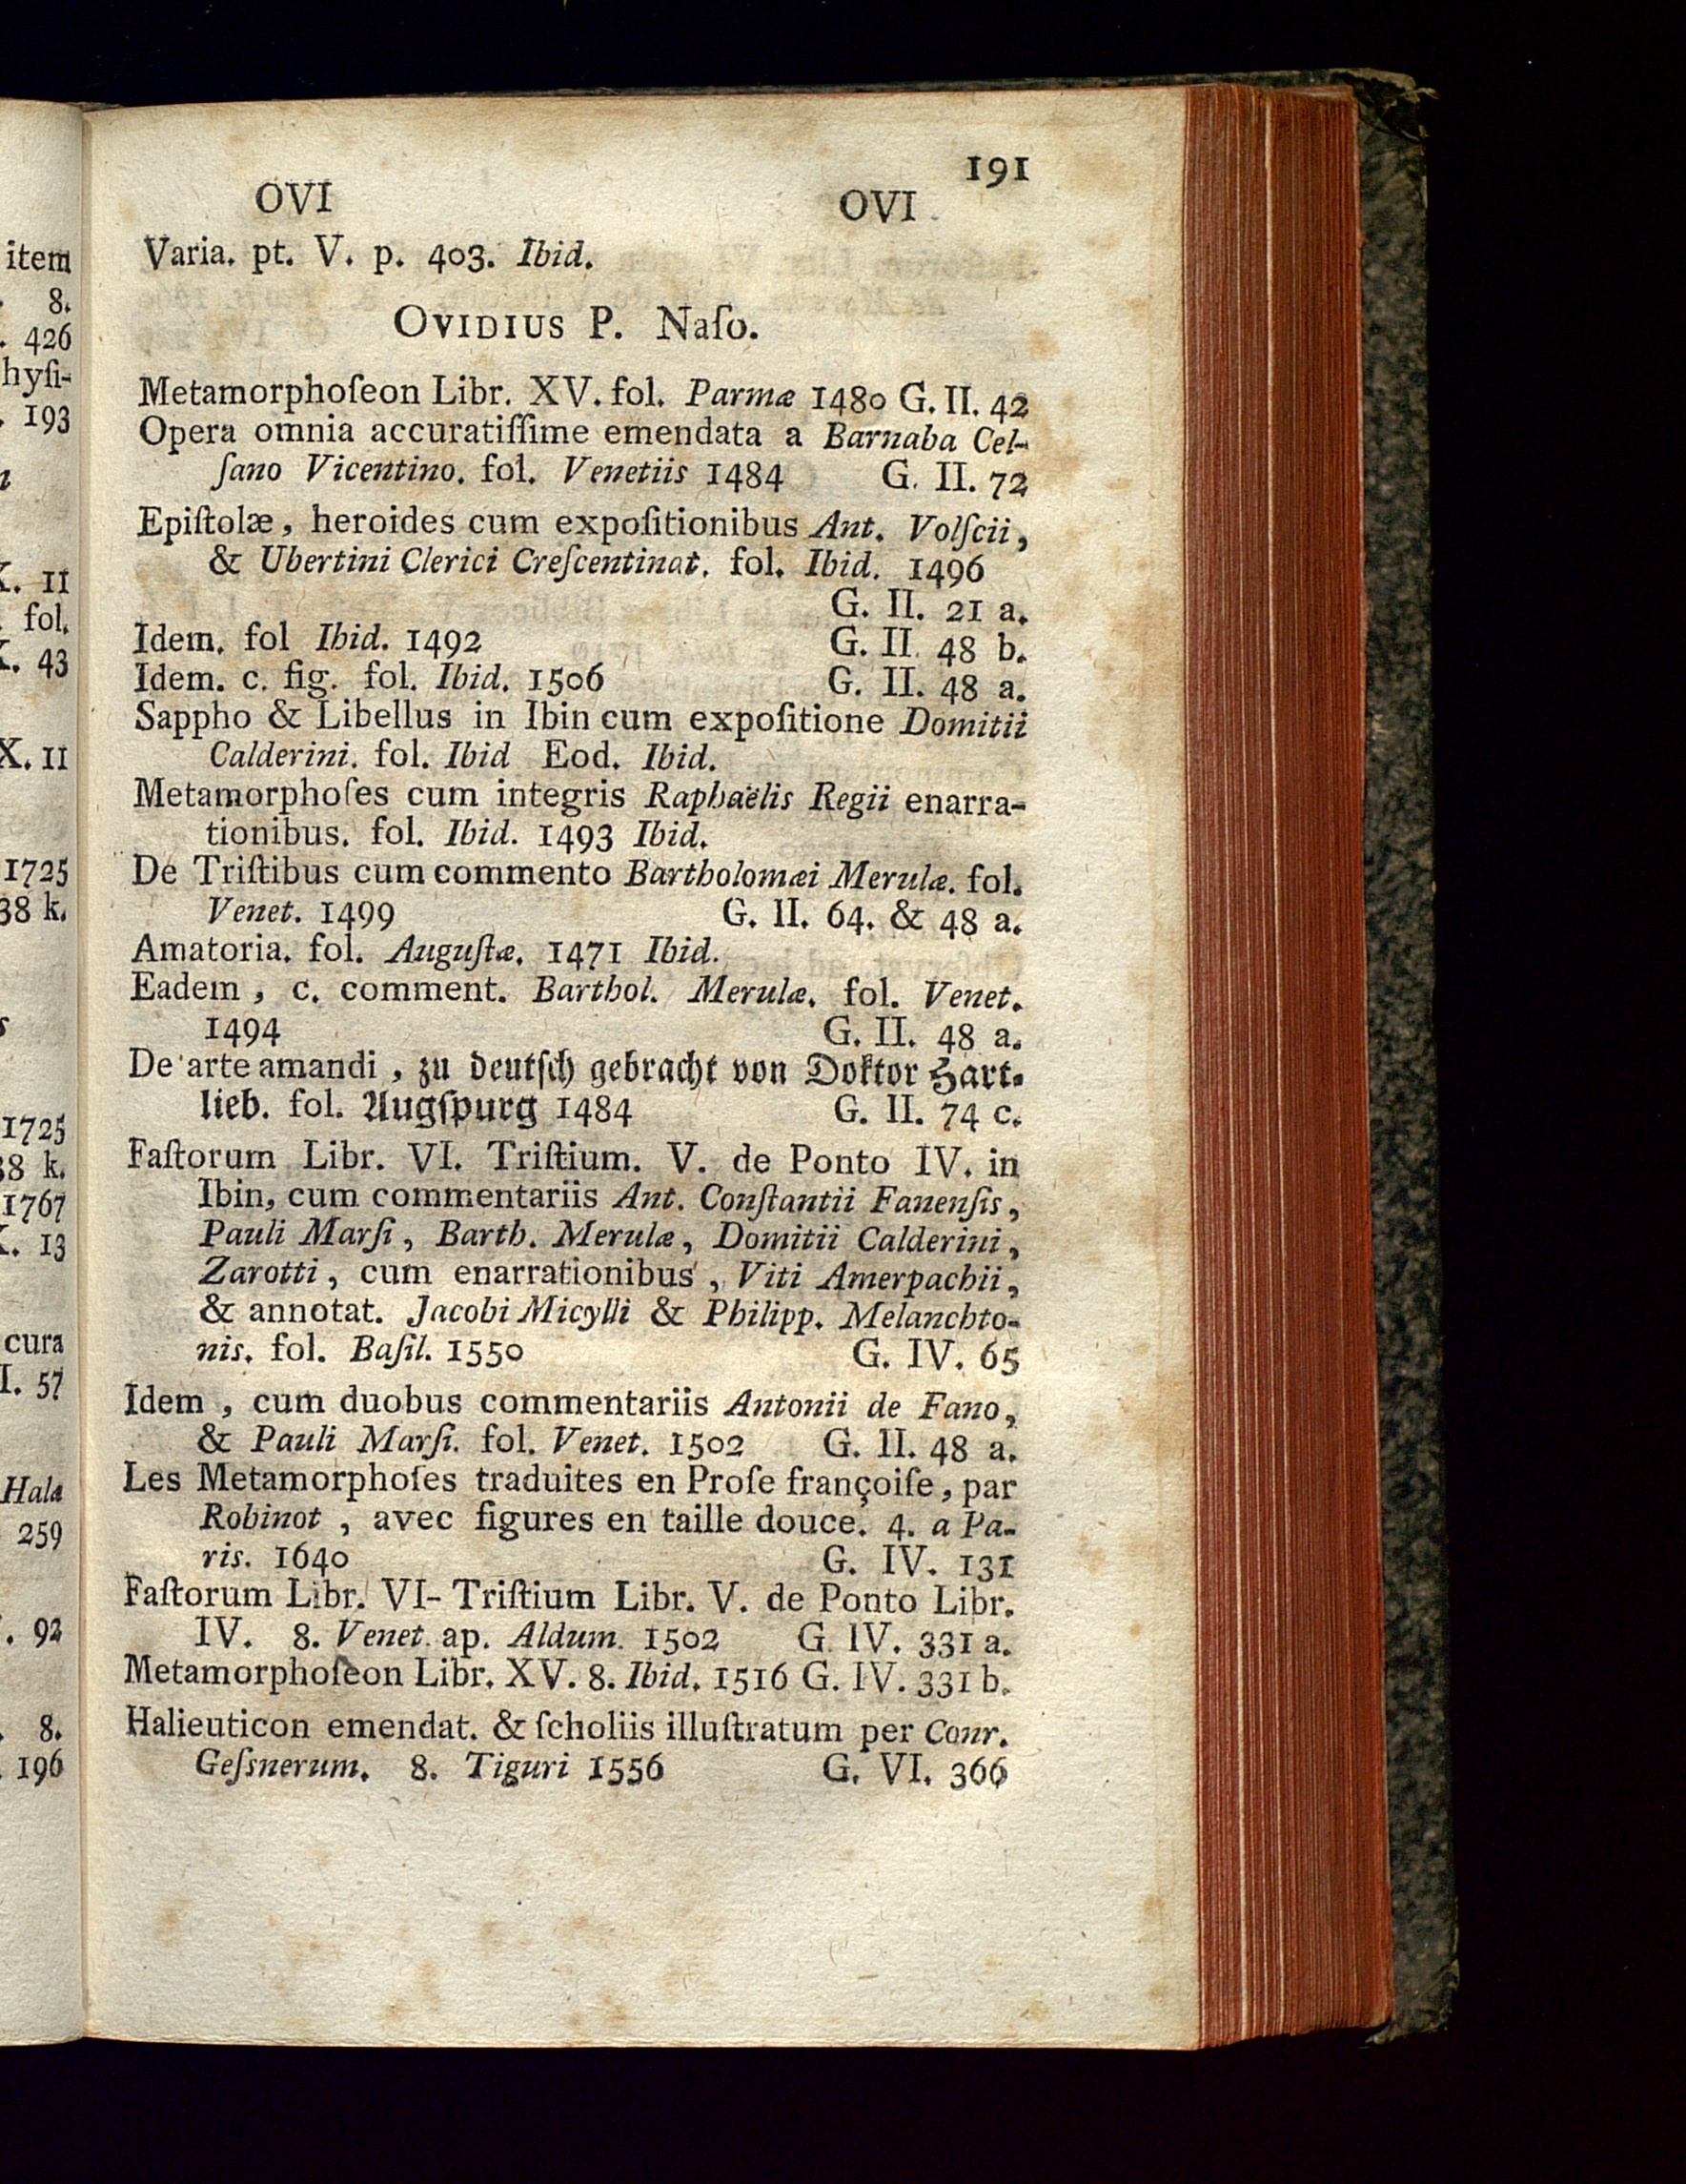 item
8.
. 426
hyſi-
. 193
X. 11
fol.
X. 43
X. 11
1725
38 k.
1725
38 k.
1767
X. 13
cura
I. 57
Halæ
259
. 92
. 8.
. 196
191
OVI OVI
Varia. pt. V. p. 403. Ibid.
OVIDIUS P. Naſo.
Metamorphoſeon Libr. XV. fol. Parmæ 1480 G. II. 42
Opera omnia accuratiſſime emendata a Barnaba Cel-
ſano Vicentino. fol. Venetiis 1484 G. II. 72
Epiſtolæ, heroides cum expoſitionibus Ant. Volſcii,
& Ubertini Clerici Creſcentinat. fol. Ibid. 1496
G. II. 21 a.
Idem. fol Ibid. 1492 G. II. 48 b.
Idem. c. fig. fol. Ibid. 1506 G. II. 48 a.
Sappho & Libellus in Ibin cum expoſitione Domitii
Calderini. fol. Ibid Eod. Ibid.
Metamorphoſes cum integris Raphaëlis Regii enarra-
tionibus. fol. Ibid. 1493 Ibid.
De Triſtibus cum commento Bartholomæi Merulæ. fol.
Venet. 1499 G. II. 64. & 48 a.
Amatoria. fol. Auguſtæ. 1471 Ibid.
Eadem, c. comment. Barthol. Merulæ. fol. Venet.
1494 G. II. 48 a.
De arte amandi, zu deutſch gebracht von Doktor Hart-
lieb. fol. Augſpurg 1484 G. II. 74 c.
Faſtorum Libr. VI. Triſtium. V. de Ponto IV. in
Ibin, cum commentariis Ant. Conſtantii Fanenſis,
Pauli Marſi, Barth. Merulæ, Domitii Calderini,
Zarotti, cum enarrationibus, Viti Amerpachii,
& annotat. Jacobi Micylli & Philipp. Melanchto-
nis. fol. Baſil. 1550 G. IV. 65
Idem, cum duobus commentariis Antonii de Fano,
& Pauli Marſi. fol. Venet. 1502 G. II. 48 a.
Les Metamorphoſes traduites en Proſe françoiſe, par
Robinot, avec figures en taille douce. 4. a Pa-
ris. 1640 G. IV. 131
Faſtorum Libr. VI- Triſtium Libr. V. de Ponto Libr.
IV. 8. Venet. ap. Aldum. 1502 G. IV. 331 a.
Metamorphoſeon Libr. XV. 8. Ibid. 1516 G. IV. 331 b.
Halieuticon emendat. & ſcholiis illuſtratum per Conr.
Geſsnerum. 8. Tiguri 1556 G. VI. 366